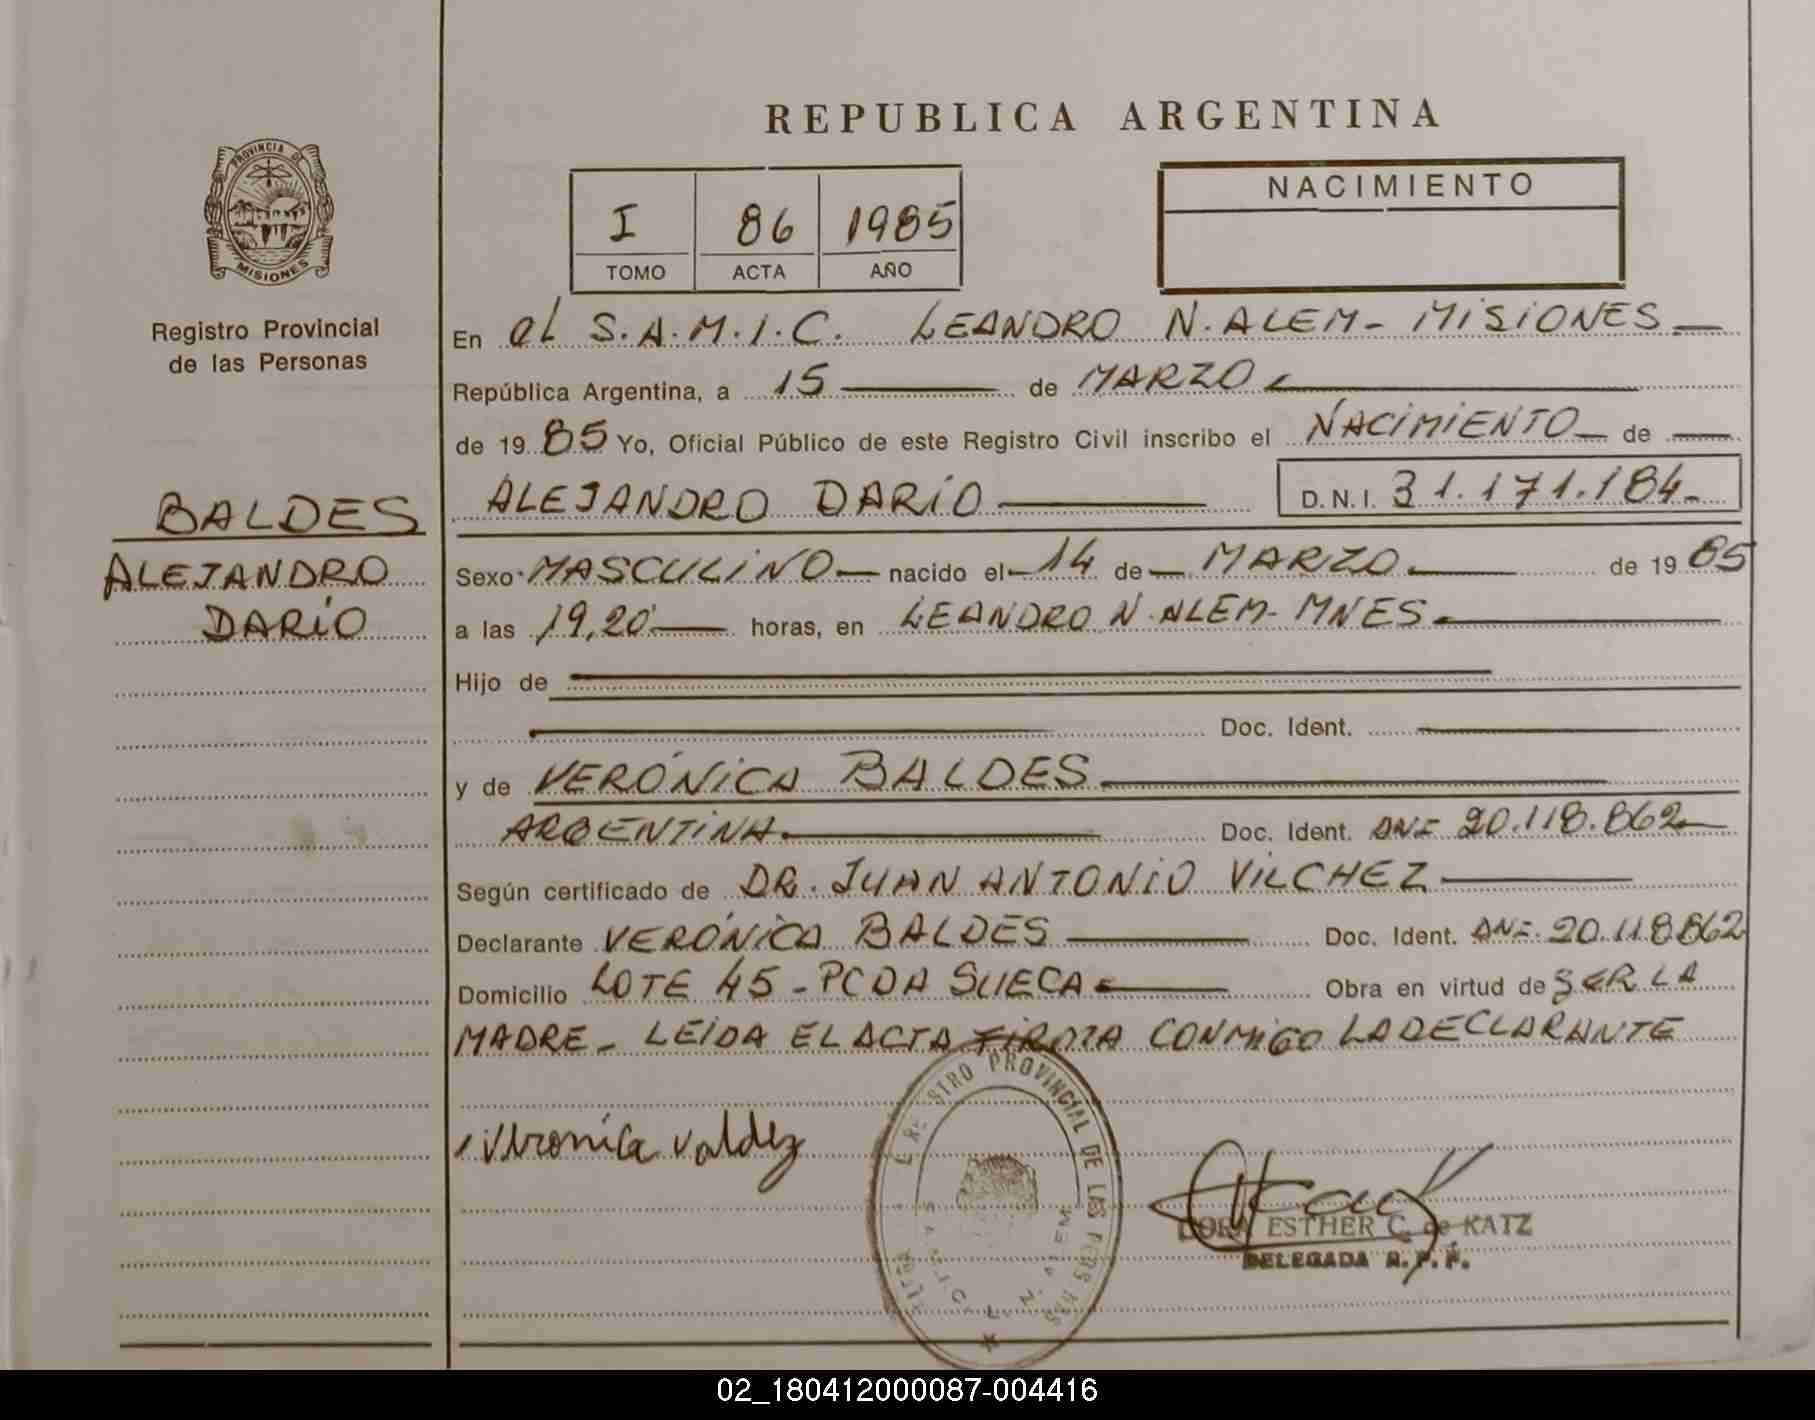 REPUBLICA ARGENTINA
PROVINCIA DE
MISIONES
Registro Provincial
de las Personas
I 86 1985
TOMO ACTA AÑO
NACIMIENTO
En el S.A.M.I.C. LEANDRO N. ALEM - MISIONES
República Argentina, a 15 de MARZO
de 19 85 Yo, Oficial Público de este Registro Civil inscribo el NACIMIENTO de
ALEJANDRO DARÍO D.N.I. 31.171.184
BALDES
ALEJANDRO
DARÍO
Sexo MASCULINO nacido el 14 de MARZO de 19 85
a las 19,20 horas, en LEANDRO N. ALEM - MNES
Hijo de
Doc. Ident.
y de VERÓNICA BALDES
ARGENTINA Doc. Ident. DNI 20.118.862
Según certificado de DR. JUAN ANTONIO VILCHEZ
Declarante VERÓNICA BALDES Doc. Ident. DNI 20.118.862
Domicilio LOTE 45 - PCDA SUECA Obra en virtud de SER LA
MADRE - LEIDA EL ACTA FIRMA CONMIGO LA DECLARANTE
Veronica Valdez
REGISTRO PROVINCIAL DE LAS PERSONAS
DORA ESTHER C. de KATZ
DELEGADA R.P.P.
02_180412000087-004416